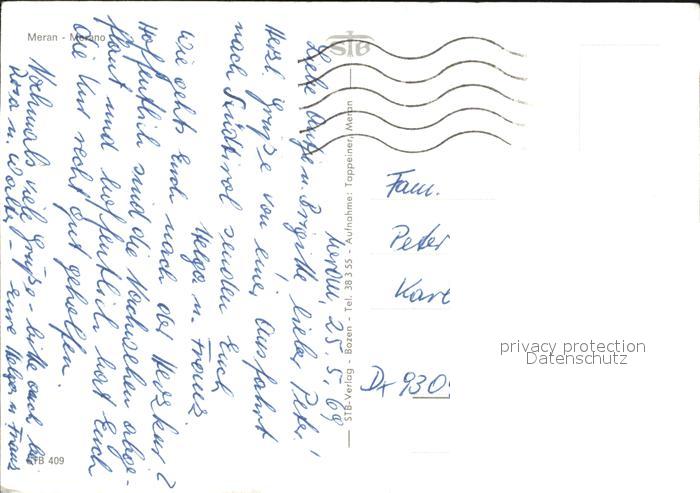 Meran - Merano
STB
Meran, 25.5.69
Liebe u. Brigitte, lieber Peter!
Herzl. Grüße von einer Ausfahrt
nach Südtirol senden Euch
Helga u. Franz
Wie gehts Euch nach der Herzkur?
Hoffentlich sind die Wehwehen abge-
flaut und hoffentlich hat Euch
die Kur recht gut geholfen.
Nochmals viele Grüße - bitte auch bei
Rosa u. Walter - eure Helga u. Franz
STB 409
STB-Verlag - Bozen - Tel. 38 3 55 - Aufnahme: Tappeiner, Meran
Fam.
Peter
Karl
D-930
privacy protection
Datenschutz